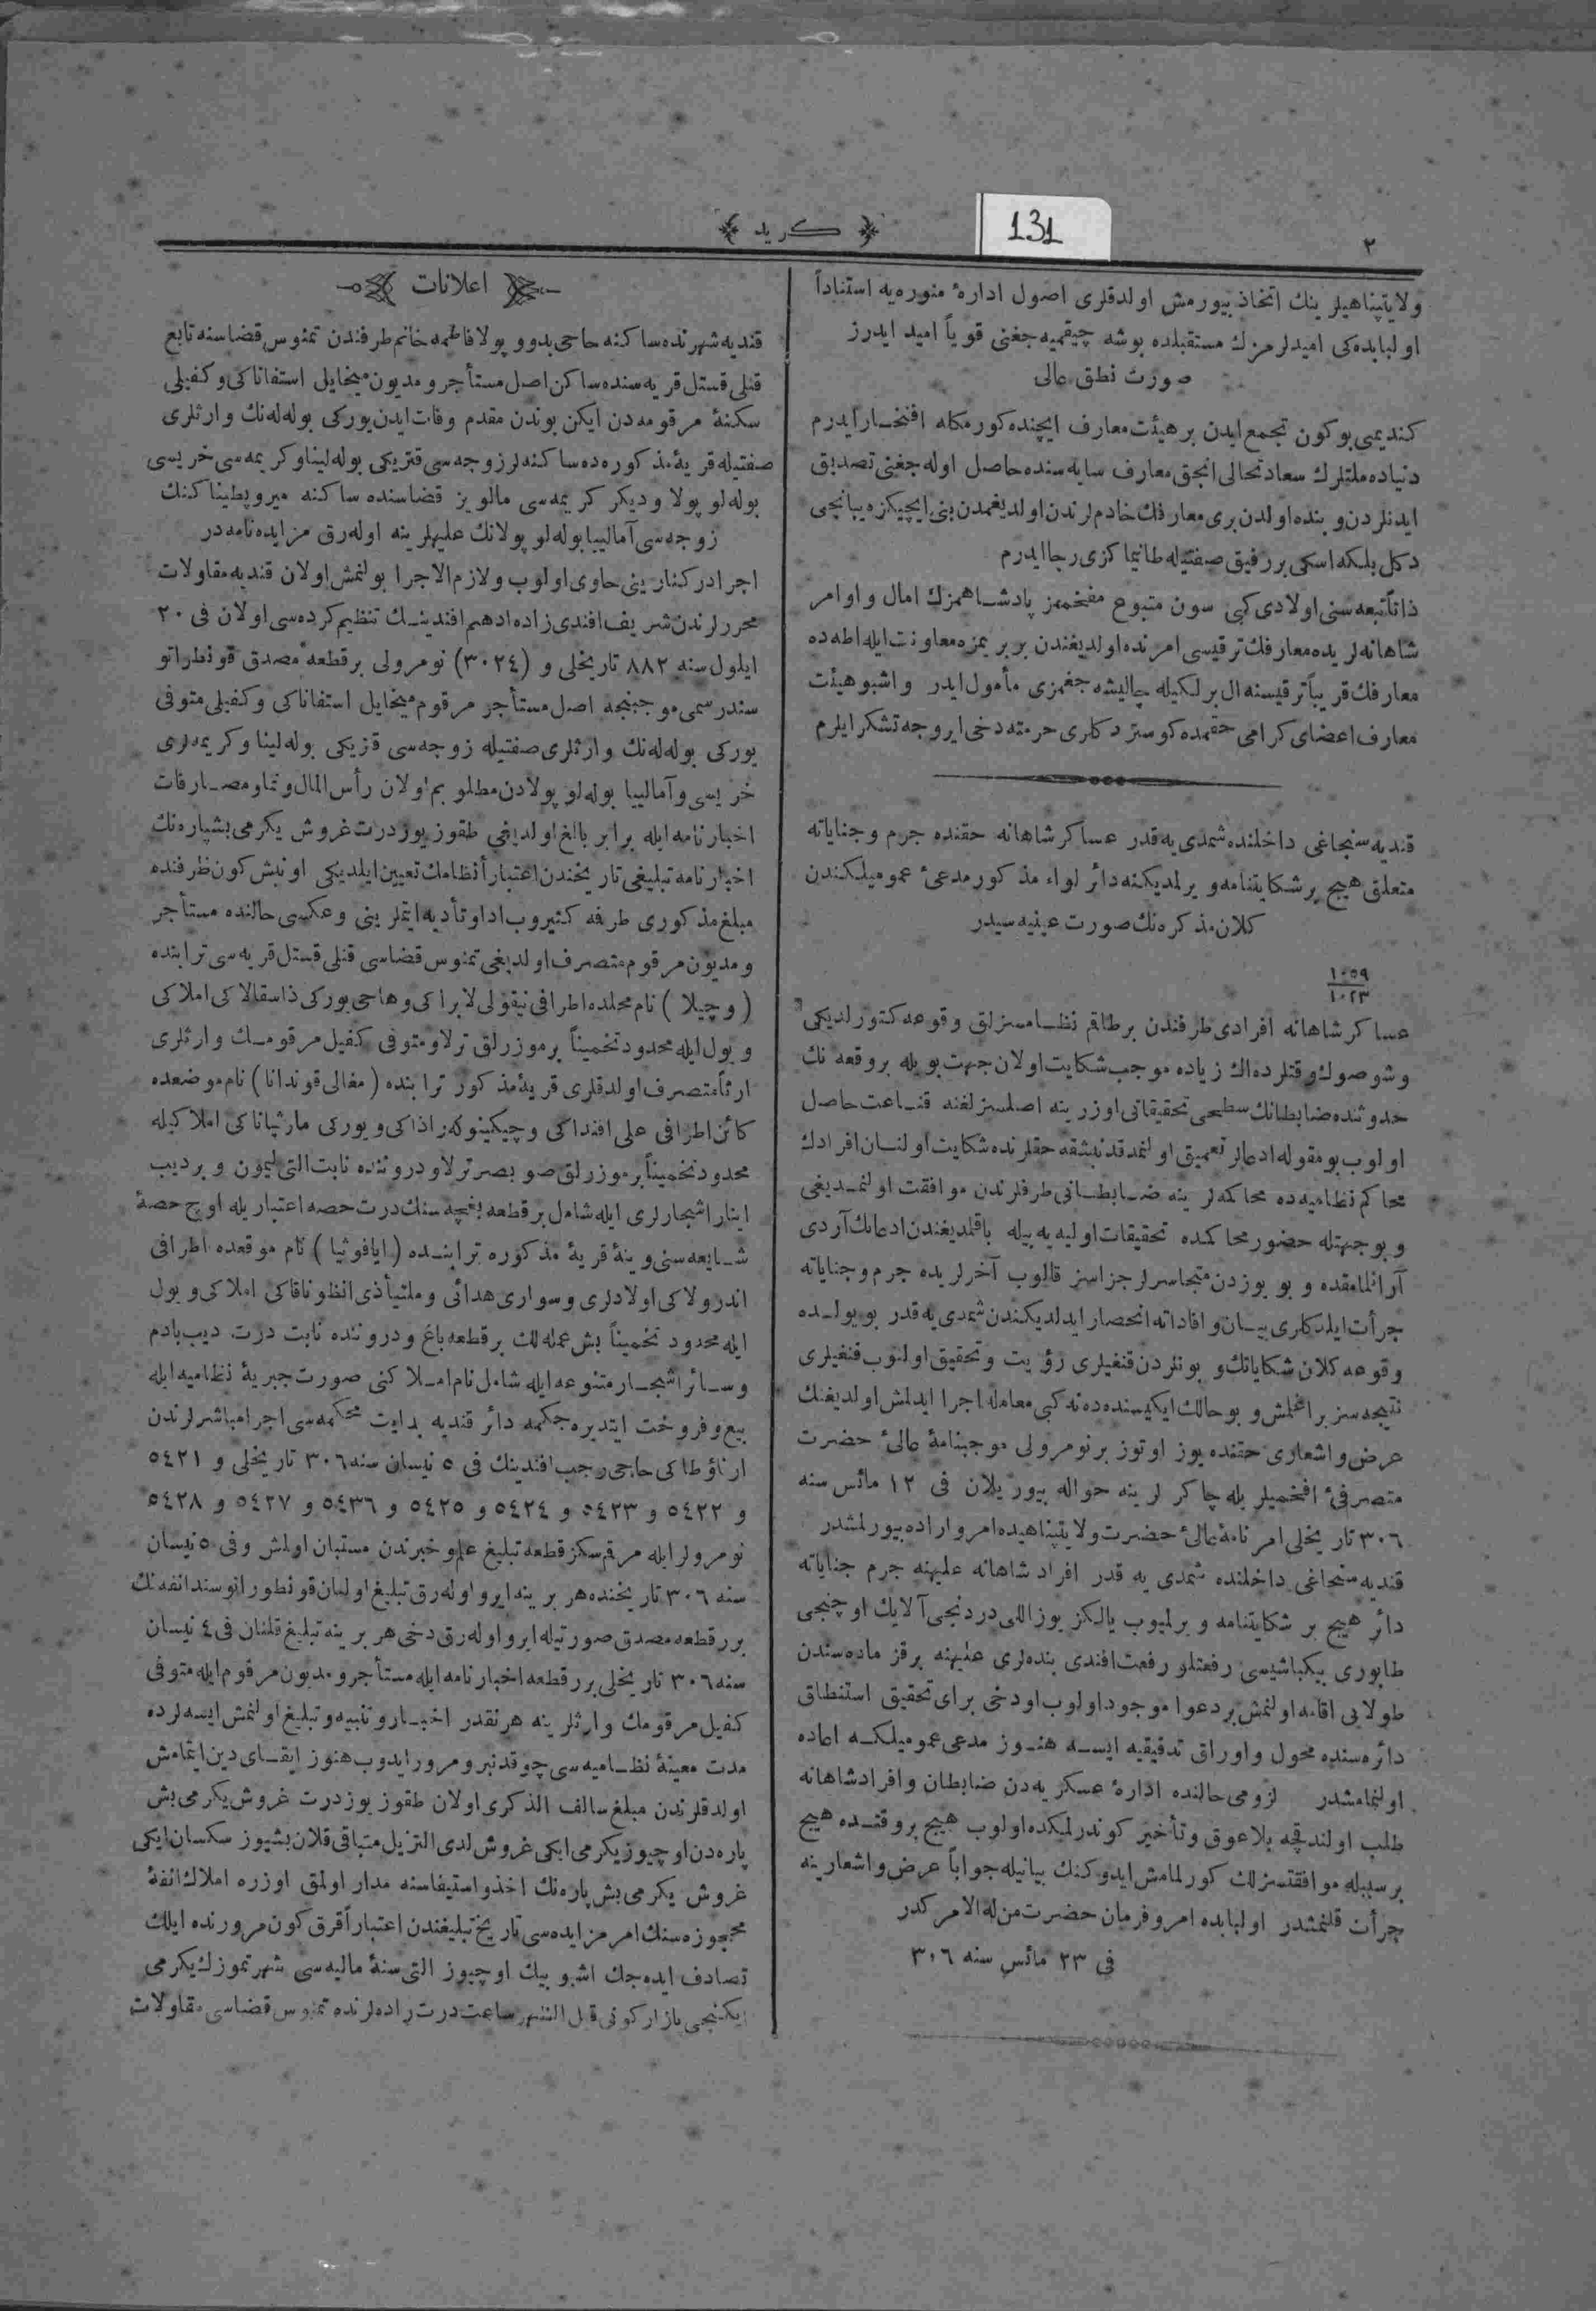 ٢
131
﴿ كريد ﴾
ولايتپناهيلرينك اتخاذ بيورمش اولدقلرى اصول ادارهٔ منوره‌يه استناداً
اولبابده‌كى اميدلرمزك مستقبلده بوشه چيقميه‌جغنى قوياً اميد ايدرز
صورت نطق عالى
كنديمى بوكون تجمع ايدن بر هيئت معارف ايچنده كورمكله افتخار ايدرم
دنياده ملتلرك سعادتحالى انجق معارف سايه‌سنده حاصل اوله‌جغنى تصديق
ايدنلردن و بنده اولدن برى معارفك خادملرندن اولديغمدن بنى ايچيكزه يبانجى
دكل بلكه اسكى بر رفيق صفتيله طانيماكزى رجا ايدرم
ذاتاً تبعه‌سنى اولادى كبى سون متبوع مفخممز پادشاهمزك امال و اوامر
شاهانه‌لريده معارفك ترقيسى امرنده اولديغندن بربريمزه معاونت ايله اطه‌ده
معارفك قريباً ترقيسنه ال برلكيله چاليشه‌جغمزى مأمول ايدر و اشبو هيئت
معارف اعضاى كرامى حقمده كوستردكلرى حرمته دخى ايروجه تشكر ايلرم
قنديه سنجاغى داخلنده شمدى‌يه قدر عساكر شاهانه حقنده جرم و جناياته
متعلق هيچ بر شكايتنامه ويرلمديكنه دائر لواء مذكور مدعئ عموميلكندن
كلان مذكره‌نك صورت عينيه‌سيدر
١٠٥٩
١٠٢٣
عساكر شاهانه افرادى طرفندن بر طاقم نظامسزلق وقوعه كتورلديكى
و شو صوك وقتلرده اك زياده موجب شكايت اولان جهت بويله بر وقعه نك
حدوثنده ضابطانك سطحى تحقيقاتى اوزرينه اصلسزلغنه قناعت حاصل
اولوب بومقوله ادعالر تعميق اولنمدقدنبشقه حقلرنده شكايت اولنان افرادك
محاكم نظاميه‌ده محاكمه‌لرينه ضابطانى طرفلرندن موافقت اولنمديغى
و بوجهتله حضور محاكمده تحقيقات اوليه‌يه بيله باقلمديغندن ادعانك آردى
آرانلمامقده و بو يوزدن متجاسرلر جزاسز قالوب آخرلريده جرم و جناياته
جرأت ايلدكلرى بيان و افاداته انحصار ايدلديكندن شمدى‌يه قدر بو يولده
وقوعه كلان شكاياتك و بونلردن قنغيلرى رؤيت و تحقيق اولنوب قنغيلرى
نتيجه‌سز براغلمش و بو حالك ايكيسنده‌ده نه كبى معامله اجرا ايدلمش اولديغنك
عرض و اشعارى حقنده يوز اوتوز بر نومرولى موجبنامهٔ عالئ حضرت
متصرفئ افخميلريله چاكرلرينه حواله بيوريلان فى ١٢ مائس سنه
٣٠٦ تاريخلى امرنامهٔ عالئ حضرت ولايتپناهيده امر و اراده بيورلمشدر
قنديه سنجاغى داخلنده شمدى يه قدر افراد شاهانه عليهنه جرم جناياته
دائر هيچ بر شكايتنامه ويرلميوب يالكز يوز اللى دردنجى آلايك اوچنجى
طابورى بيكباشيسى رفعتلو رفعت افندى بنده‌لرى عليهنه بر قز ماده‌سندن
طولايى اقامه اولنمش بر دعوا موجود اولوب اودخى براى تحقيق استنطاق
دائره‌سنده محول و اوراق تدقيقيه ايسه هنوز مدعى عموميلكه اعاده
اولنمامشدر لزومى حالنده ادارهٔ عسكريه‌دن ضابطان و افراد شاهانه
طلب اولندقچه بلاعوق و تأخير كوندرلمكده اولوب هيچ بر وقتده هيچ
بر سببله موافقتسزلك كورلمامش ايدوكنك بيانيله جواباً عرض و اشعارينه
جرأت قلنمشدر اولبابده امر و فرمان حضرت من له الامركدر
فى ٢٣ مائس سنه ٣٠٦
اعلانات
قنديه شهرنده ساكنه حاجى بدوو پولا فاطمه خانم طرفندن تمنوس قضاسنه تابع
قنلى قستل قريه‌سنده ساكن اصل مستأجر و مديون ميخايل استفاناكى و كفيلى
سكنهٔ مرقومه‌دن ايكن بوندن مقدم وفات ايدن يوركى بوله‌له‌نك وارثلرى
صفتيله قريهٔ مذكوره‌ده ساكنه‌لر زوجه‌سى قتريكى بوله‌لينا و كريمه‌سى خريسى
بوله‌لو پولا و ديكر كريمه‌سى مالويز قضاسنده ساكنه ميروپطيناكنك
زوجه‌سى آماليبا بوله‌لو پولانك عليهلرينه اوله‌رق مزايده‌نامه‌در
اجرا دركنارينى حاوى اولوب و لازم الاجرا بولنمش اولان قنديه مقاولات
محررلرندن شريف افندى زاده ادهم افندينك تنظيم كرده‌سى اولان فى ٢٠
ايلول سنه ٨٨٢ تاريخلى و (٣٠٢٤) نومرولى بر قطعه مصدق قونطراتو
سند رسمى موجبنجه اصل مستأجر مرقوم ميخايل استفاناكى و كفيلى متوفى
يوركى بوله‌له‌نك وارثلرى صفتيله زوجه‌سى قزيكى بوله‌لينا و كريمه‌لرى
خريسى و آماليبا بوله‌لو پولادن مطلوبم اولان رأس المال و نما و مصارفات
اخبارنامه ايله برابر بالغ اولديغى طقوز يوز درت غروش يكرمى بش پاره‌نك
اخبارنامه تبليغى تاريخندن اعتباراً نظامك تعيين ايلديكى اونبش كون ظرفنده
مبلغ مذكورى طرفمه كتيروب ادا و تأديه ايتملرينى و عكسى حالنده مستأجر
و مديون مرقوم متصرف اولديغى تمنوس قضاسى قنلى قستل قريه‌سى ترابنده
( وچيلا ) نام محلده اطرافى نيقولى لابراكى و هاجى يوركى ذاسقالاكى املاكى
و يول ايله محدود تخميناً بر موزرلق ترلا و متوفى كفيل مرقومك وارثلرى
ارثاً متصرف اولدقلرى قريهٔ مذكور ترابنده ( مغالى قوندانا ) نام موضعده
كائن اطرافى على افنداكى و چيكينوكه‌راذاكى و يوركى مارثياناكى املاكيله
محدود تخميناً بر موزرلق صو بصر ترلا و دروننده نابت التى ليمون و بر ديب
اينار اشجارلرى ايله شامل بر قطعه بغچه‌سنك درت حصه اعتباريله اوچ حصهٔ
شايعه‌سنى و ينه قريهٔ مذكوره ترابنده ( ايافوثيا ) نام موقعده اطرافى
اندرولاكى اولادلرى و سوارى هدائى و ملتيأذى انظوناقاكى املاكى و يول
ايله محدود تخميناً بش عمله‌لك بر قطعه باغ و دروننده نابت درت ديب بادم
و سائر اشجار متنوعه ايله شامل نام املاكنى صورت جبريهٔ نظاميه ايله
بيع و فروخت ايتديره‌جكمه دائر قنديه بدايت محكمه‌سى اجرا مباشرلرندن
ارناؤطاكى حاجى رجب افندينك فى ٥ نيسان سنه ٣٠٦ تاريخلى و ٥٤٢١
و ٥٤٢٢ و ٥٤٢٣ و ٥٤٢٤ و ٥٤٢٥ و ٥٤٣٦ و ٥٤٢٧ و ٥٤٢٨
نومرولر ايله مرقم سكز قطعه تبليغ علم و خبرندن مستبان اولمش و فى ٥ نيسان
سنه ٣٠٦ تاريخنده هر برينه ايرو اوله‌رق تبليغ اولنان قونطوراتو سند انفه‌نك
برر قطعه مصدق صورتيله ايرو اوله‌رق دخى هر برينه تبليغ قلنان فى ٤ نيسان
سنه ٣٠٦ تاريخلى برر قطعه اخبارنامه ايله مستأجر و مديون مرقوم ايله متوفى
كفيل مرقومك وارثلرينه هرنقدر اخبار و تنبيه و تبليغ اولنمش ايسه‌لرده
مدت معينهٔ نظاميه‌سى چوقدنبرو مرور ايدوب هنوز ايفاى دين ايتمامش
اولدقلرندن مبلغ سالف الذكرى اولان طقوز يوز درت غروش يكرمى بش
پاره‌دن اوچيوز يكرمى ايكى غروش لدى التزيل متباقى قلان بشيوز سكسان ايكى
غروش يكرمى بش پاره‌نك اخذ و استيفاسنه مدار اولمق اوزره املاك انفهٔ
محجوزه‌سنك امر مزايده‌سى تاريخ تبليغندن اعتباراً قرق كون مرورنده ايلك
تصادف ايده‌جك اشبو بيك اوچيوز التى سنهٔ ماليه‌سى شهر تموزك يكرمى
ايكنجى بازار كونى قبل الظهر ساعت درت راده‌لرنده تمنوس قضاسى مقاولات